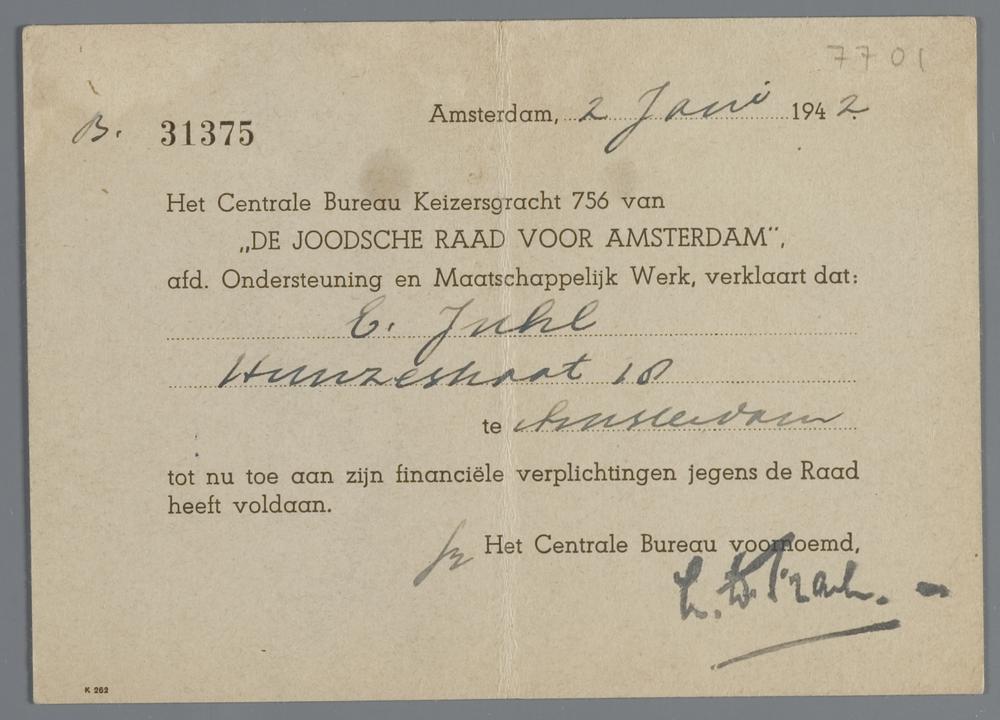 7701
Amsterdam, 2 Juni 1942.
B. 31375
Het Centrale Bureau Keizersgracht 756 van
„DE JOODSCHE RAAD VOOR AMSTERDAM”,
afd. Ondersteuning en Maatschappelijk Werk, verklaart dat:
E. Juhl
Hunzestraat 18
te Amsterdam
tot nu toe aan zijn financiële verplichtingen jegens de Raad
heeft voldaan.
Het Centrale Bureau voornoemd,
K 262